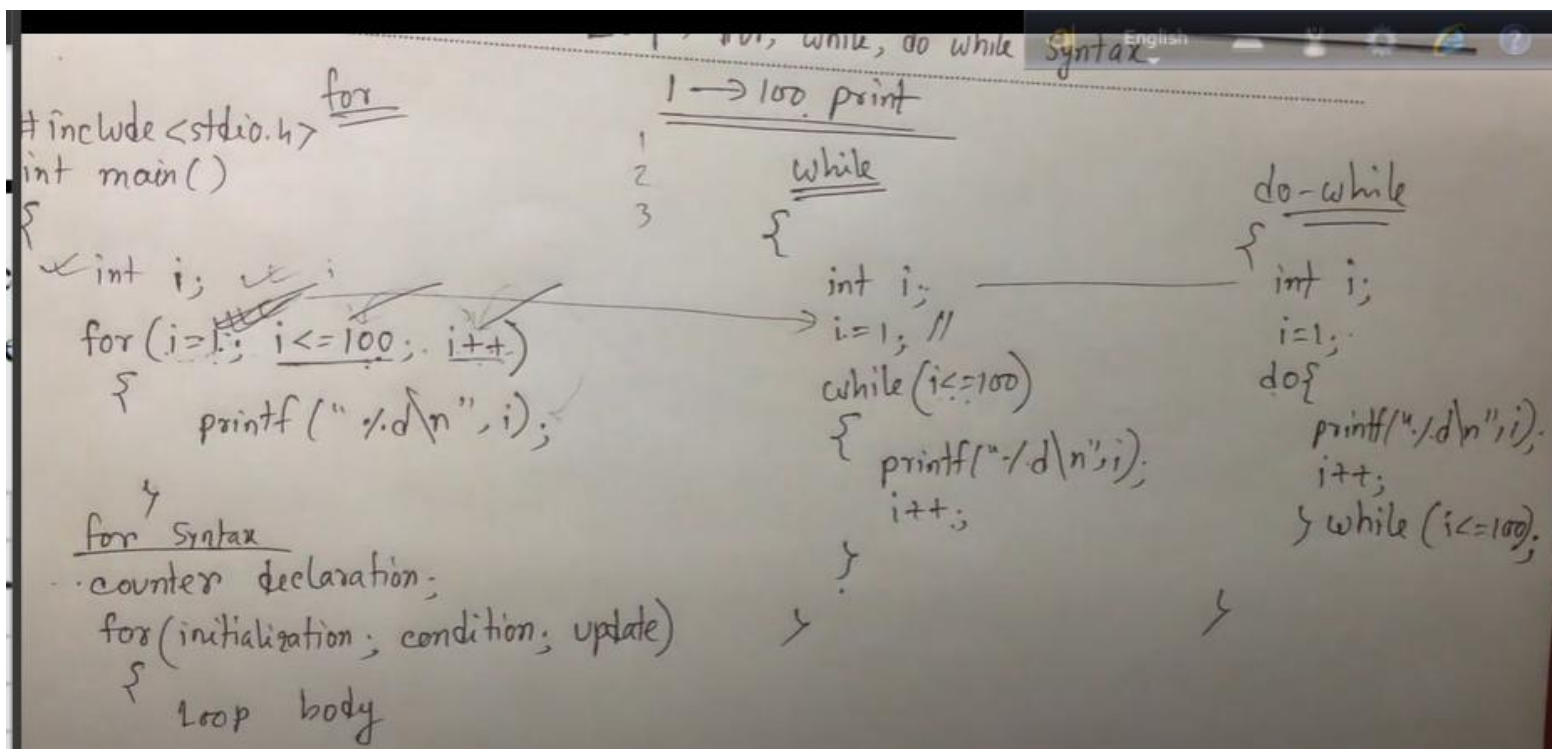 for, while, do while Syntax
English
1 → 100 print
for
#include<stdio.h>
int main()
{
int i; i
for(i=1; i<=100; i++)
{
printf("%d\n", i);
}
for Syntax
counter declaration;
for(initialization; condition; update)
{
Loop body
1
2
3
while
{
int i;
i=1; //
while(i<=100)
{
printf("%d\n", i);
i++;
}
}
do-while
{
int i;
i=1;
do{
printf("%d\n", i);
i++;
} while (i<=100);
}